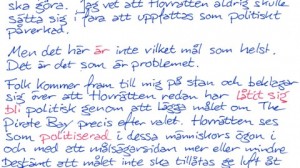 ska göra. Jag vet att Hovrätten aldrig skulle
sätta sig i fara att uppfattas som politiskt
påverkad.
Men det här är inte vilket mål som helst.
Det är det som är problemet.
Folk kommer fram till mig på stan och beklagar
sig över att Hovrätten redan har låtit sig
bli politisk genom att lägga målet om The
Pirate Bay precis efter valet. Hovrätten ses
som politiserad i dessa människors ögon i
och med att målsägarsidan mer eller mindre
bestämt att målet inte ska tillåtas gå luft åt